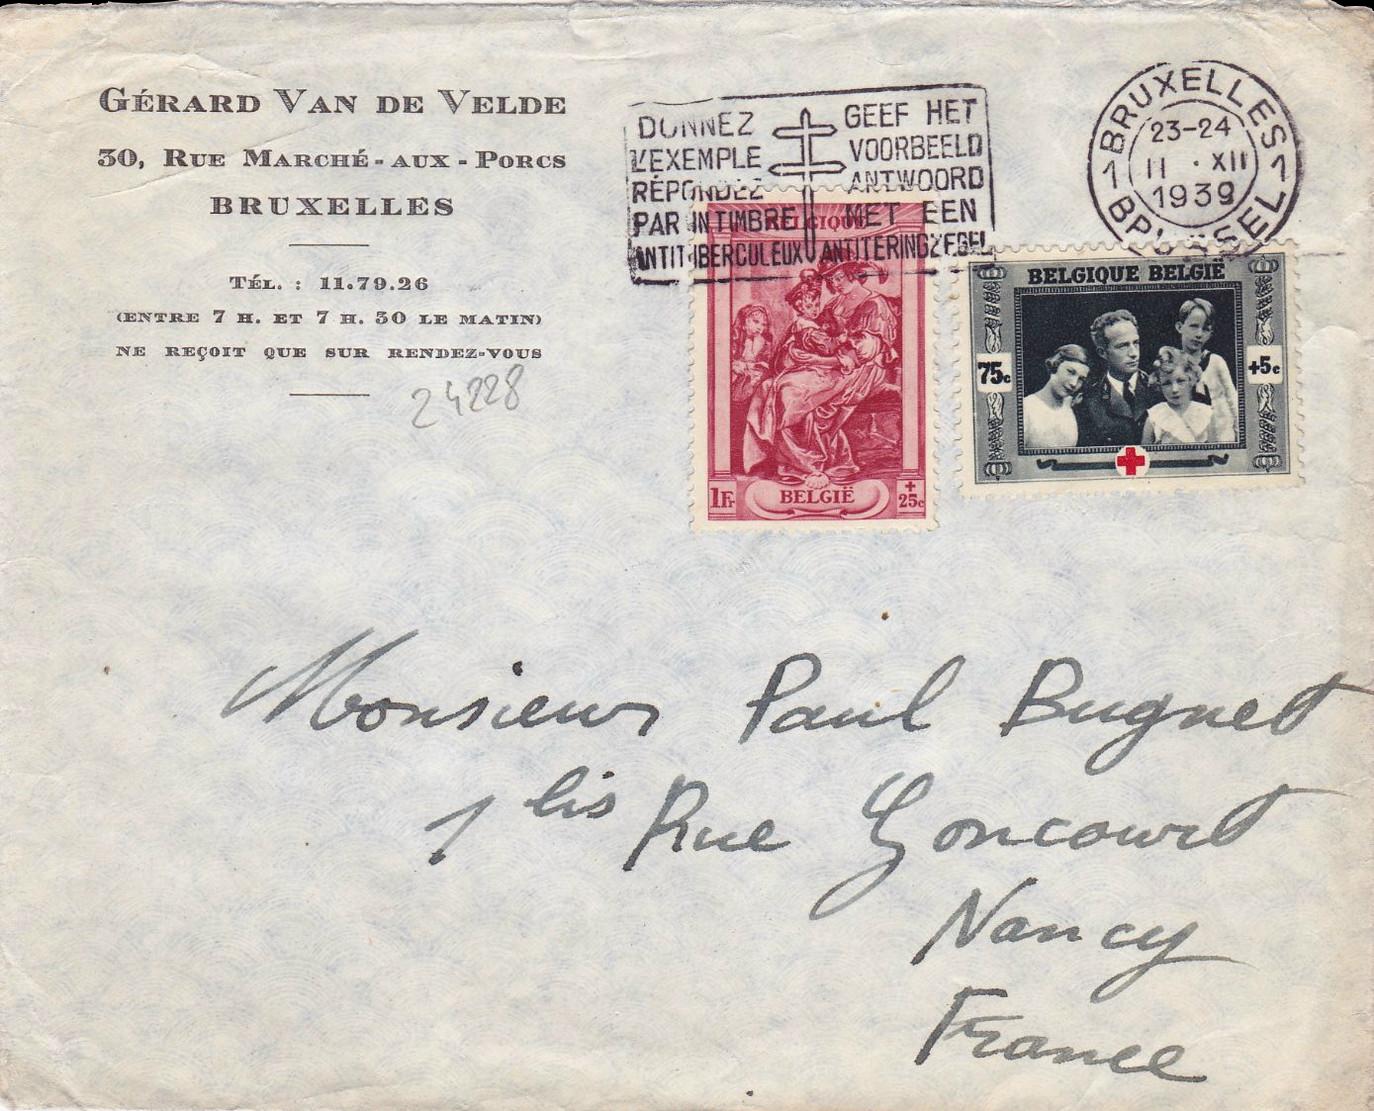 GÉRARD VAN DE VELDE
30, RUE MARCHÉ-AUX-PORCS
BRUXELLES
TÉL. : 11.79.26
(ENTRE 7 H. ET 7 H. 30 LE MATIN)
NE REÇOIT QUE SUR RENDEZ-VOUS
24228
DONNEZ
L'EXEMPLE
RÉPONDEZ
PAR UN TIMBRE
ANTITUBERCULEUX
GEEF HET
VOORBEELD
ANTWOORD
MET EEN
ANTITERINGZEGEL
1 BRUXELLES 1
23-24
11 · XII
1939
BRUSSEL
BELGIQUE
1Fr
BELGIË
+
25c
BELGIQUE BELGIË
75c
+5c
Monsieur Paul Bugnet
1 bis Rue Goncourt
Nancy
France